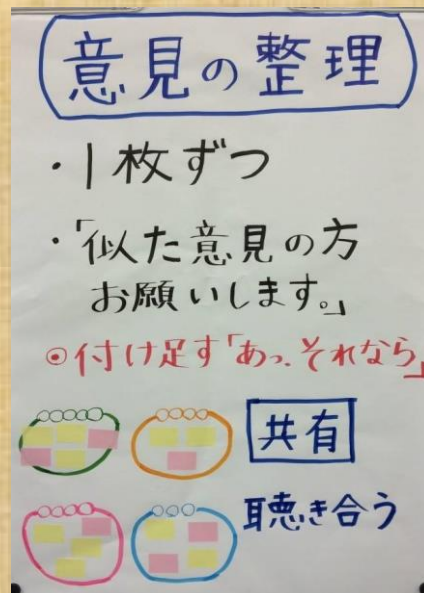 意見の整理
・1枚ずつ
・「似た意見の方
お願いします。」
◎付け足す「あっ、それなら」
○○○○○
○○○○
共有
聴き合う
○○○○
○○○